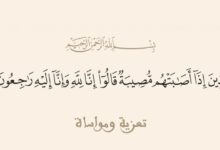 بسم الله الرحمن الرحيم
ذِينَ إِذَا أَصَابَتْهُم مُّصِيبَةٌ قَالُوا إِنَّا لِلَّهِ وَإِنَّا إِلَيْهِ رَاجِعُونَ
تعزية ومواساة